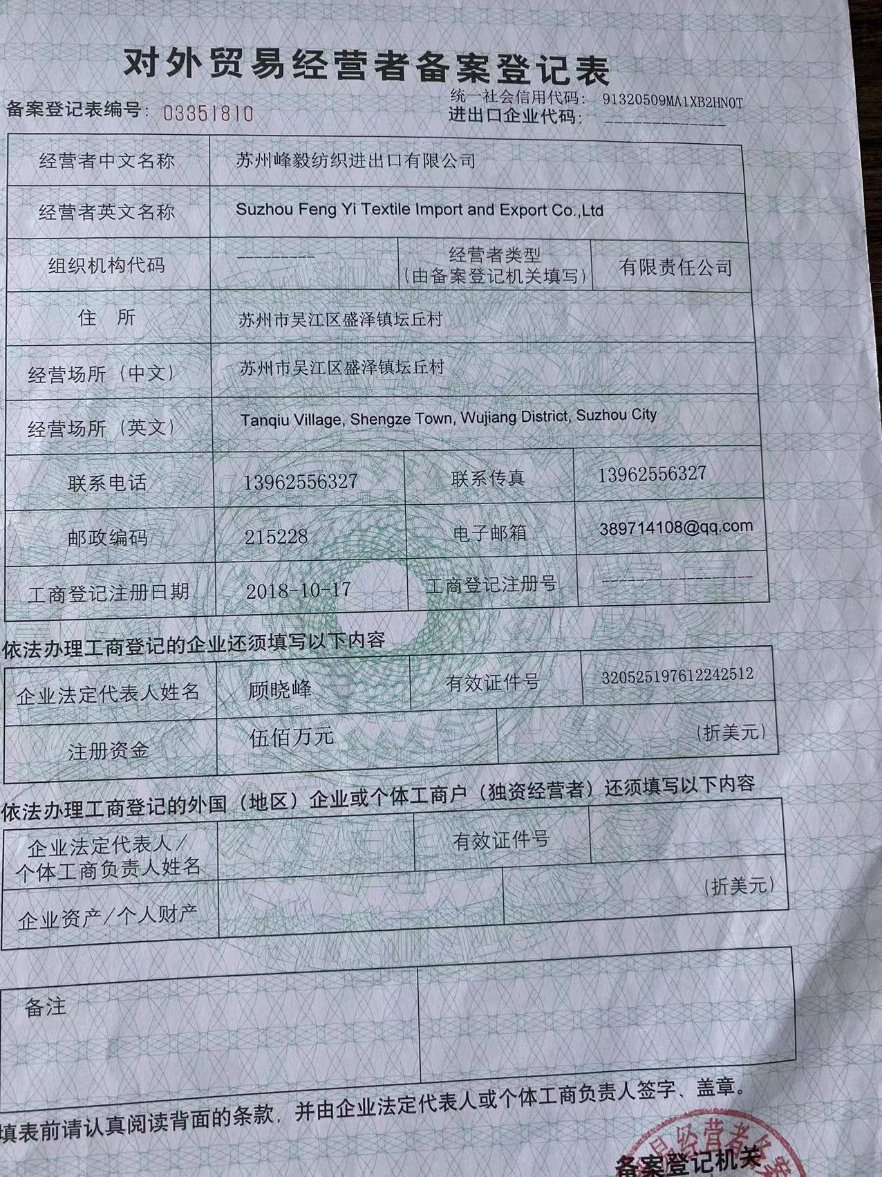 对外贸易经营者备案登记表
统一社会信用代码: 91320509MA1XB2HN0T
备案登记表编号: 03351810 进出口企业代码: ______________
经营者中文名称 苏州峰毅纺织进出口有限公司
经营者英文名称 Suzhou Feng Yi Textile Import and Export Co.,Ltd
组织机构代码 --------- 经营者类型
(由备案登记机关填写) 有限责任公司
住 所 苏州市吴江区盛泽镇坛丘村
经营场所(中文) 苏州市吴江区盛泽镇坛丘村
经营场所(英文) Tanqiu Village, Shengze Town, Wujiang District, Suzhou City
联系电话 13962556327 联系传真 13962556327
邮政编码 215228 电子邮箱 389714108@qq.com
工商登记注册日期 2018-10-17 工商登记注册号 ------------------
依法办理工商登记的企业还须填写以下内容
企业法定代表人姓名 顾晓峰 有效证件号 320525197612242512
注册资金 伍佰万元 (折美元)
依法办理工商登记的外国(地区)企业或个体工商户(独资经营者)还须填写以下内容
企业法定代表人/
个体工商负责人姓名 有效证件号
企业资产/个人财产 (折美元)
备注
填表前请认真阅读背面的条款,并由企业法定代表人或个体工商负责人签字、盖章。
备案登记机关
易经营者备案